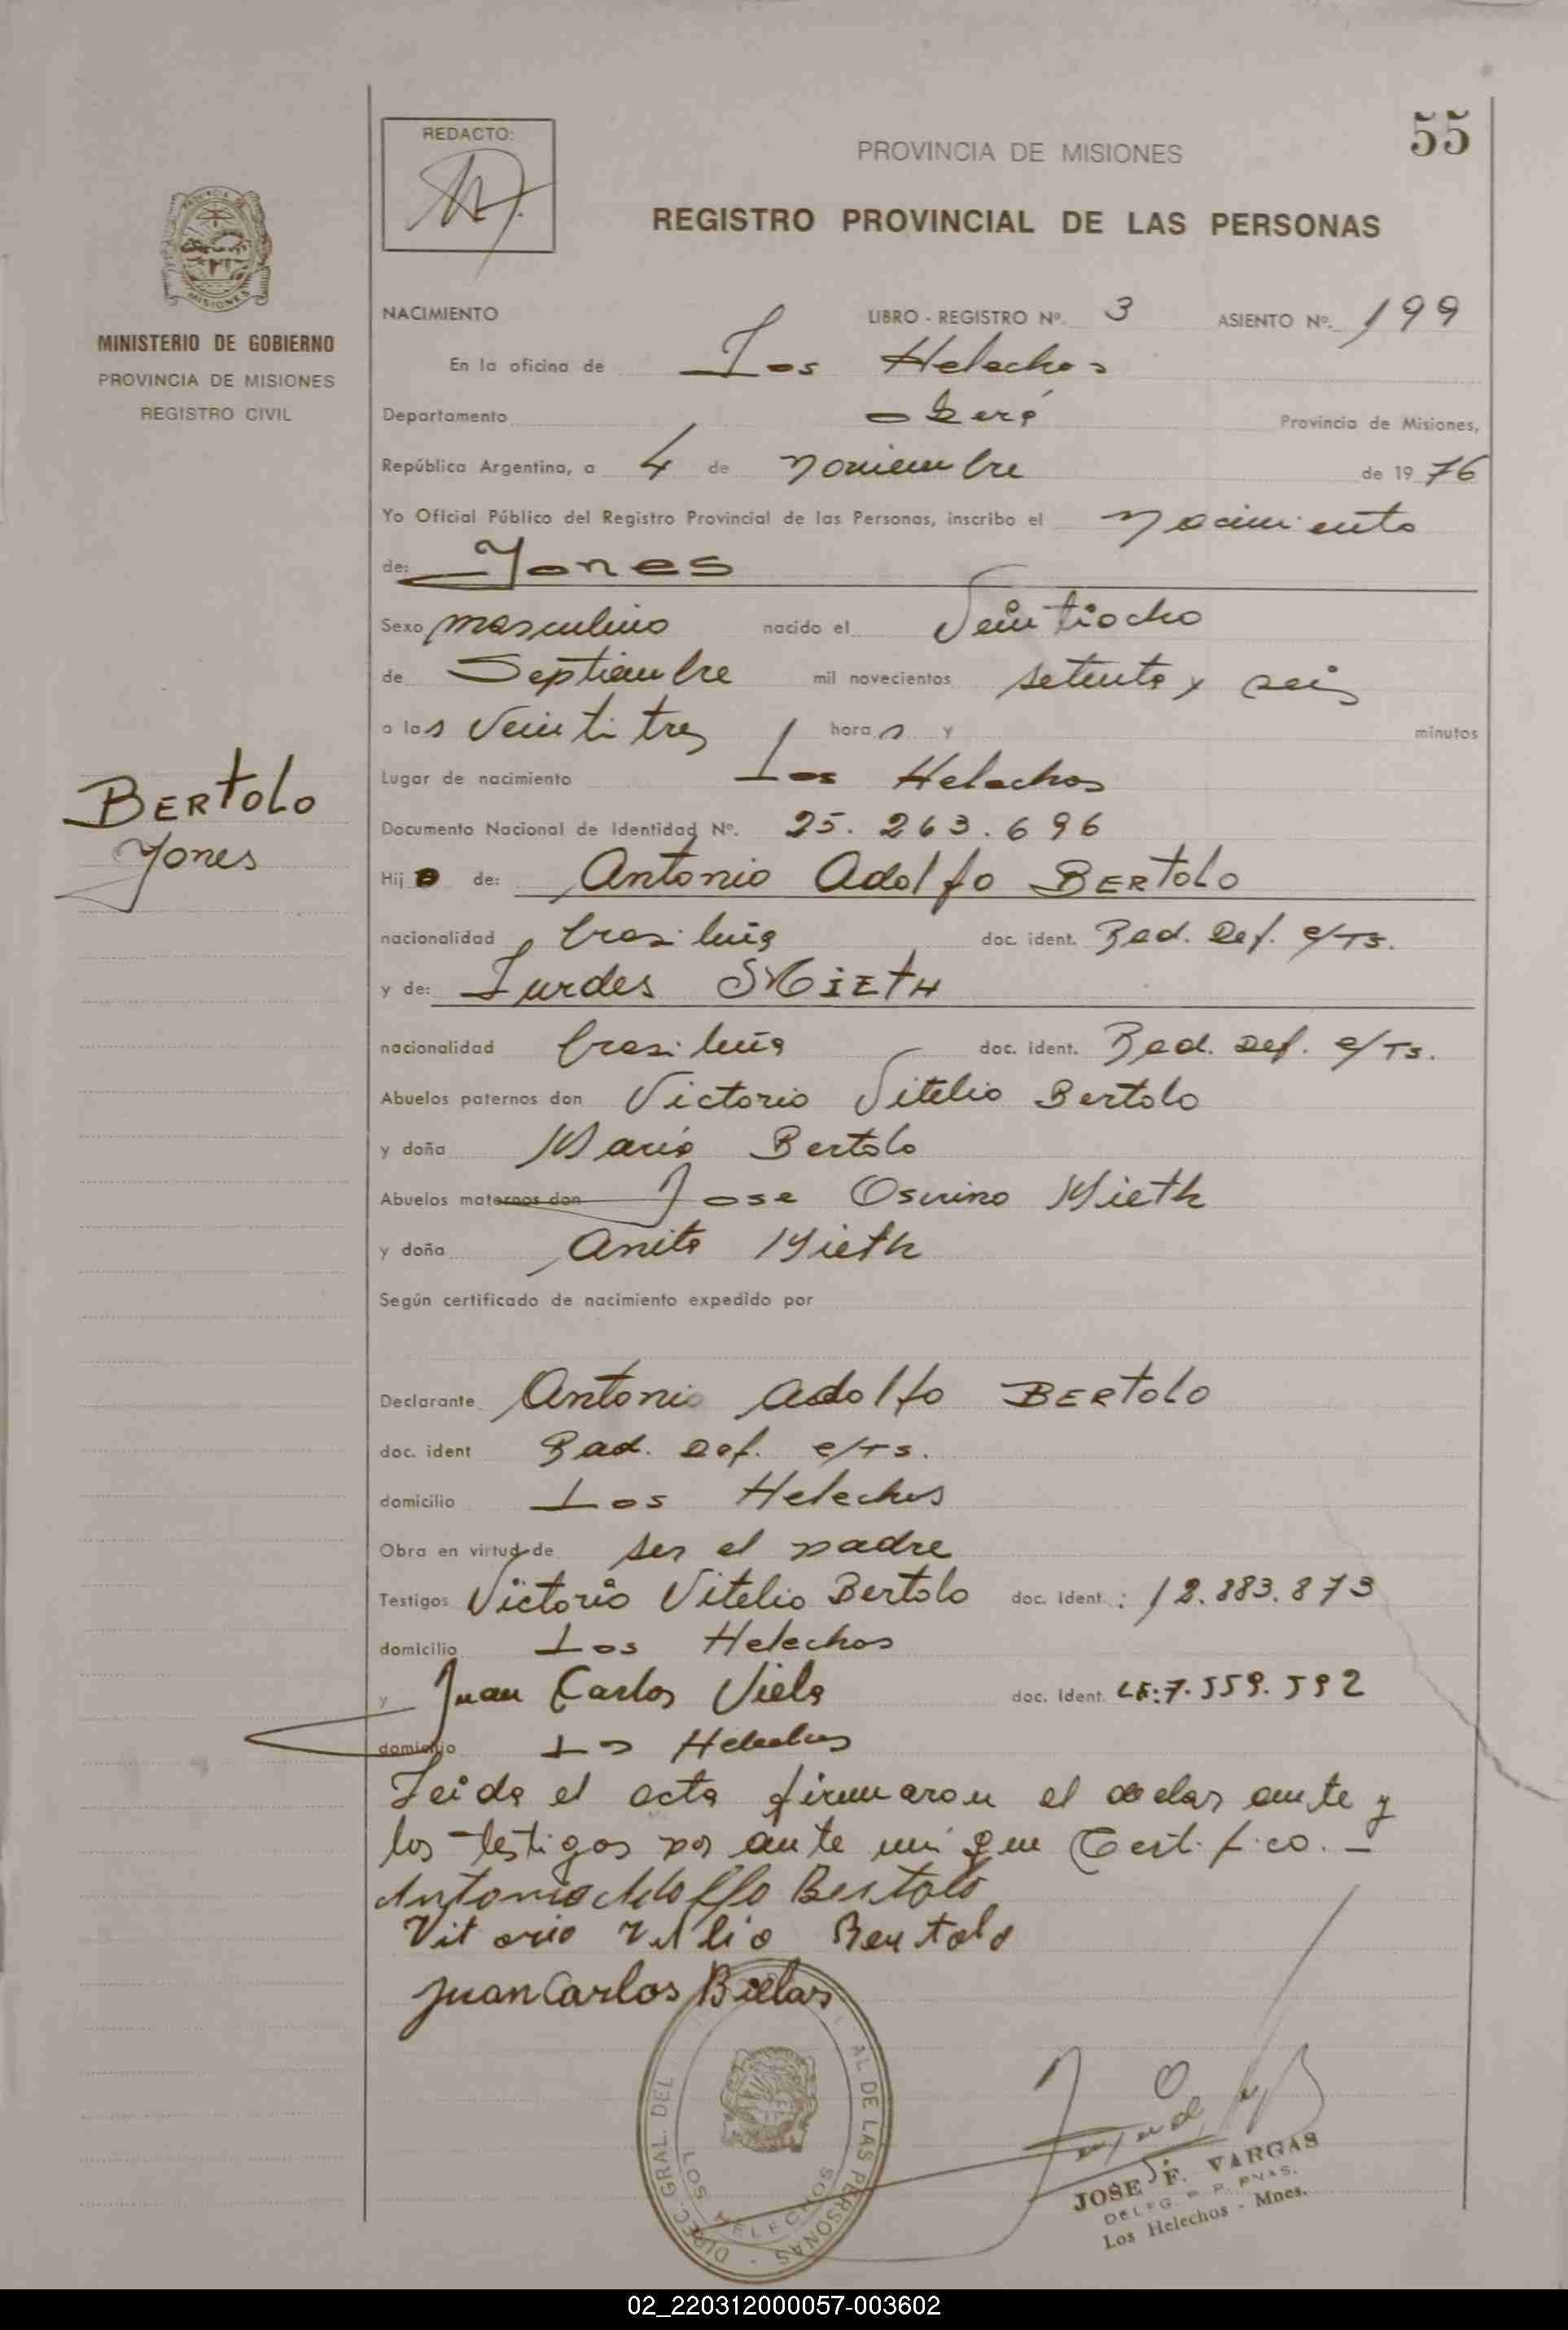 55
REDACTO:
PROVINCIA DE MISIONES
REGISTRO PROVINCIAL DE LAS PERSONAS
MINISTERIO DE GOBIERNO
PROVINCIA DE MISIONES
REGISTRO CIVIL
NACIMIENTO LIBRO - REGISTRO Nº. 3 ASIENTO Nº. 199
En la oficina de Los Helechos
Departamento Oberá Provincia de Misiones,
República Argentina, a 4 de noviembre de 1976
Yo Oficial Público del Registro Provincial de las Personas, inscribo el nacimiento
de: Jones
Sexo masculino nacido el Veintiocho
de Septiembre mil novecientos setenta y seis
a las Veintitres horas y minutos
Lugar de nacimiento Los Helechos
BERTOLO
Jones
Documento Nacional de Identidad Nº. 25.263.696
Hijo de: Antonio Adolfo BERTOLO
nacionalidad brasileña doc. ident. Rad. Def. e/Ts.
y de: Lurdes MIETH
nacionalidad brasileña doc. ident. Rad. Def. e/Ts.
Abuelos paternos don Victorio Vitelio Bertolo
y doña María Bertolo
Abuelos maternos don Jose Osvino Mieth
y doña Anita Mieth
Según certificado de nacimiento expedido por
Declarante Antonio Adolfo BERTOLO
doc. ident Rad. Def. e/Ts.
domicilio Los Helechos
Obra en virtud de ser el padre
Testigos Victorio Vitelio Bertolo doc. ident.: 12.883.873
domicilio Los Helechos
y Juan Carlos Viela doc. ident. LE:7.559.592
domicilio Los Helechos
Leida el acta firmaron el declarante y
los testigos por ante mi que Certifico.-
Antonio Adolfo Bertolo
Vitorio Vitelio Bertolo
Juan Carlos Bielas
DIREC. GRAL. DEL AL DE LAS PERSONAS
LOS HELECHOS
JOSE F. VARGAS
DELEG. R. P. PNAS.
Los Helechos - Mnes.
02_220312000057-003602